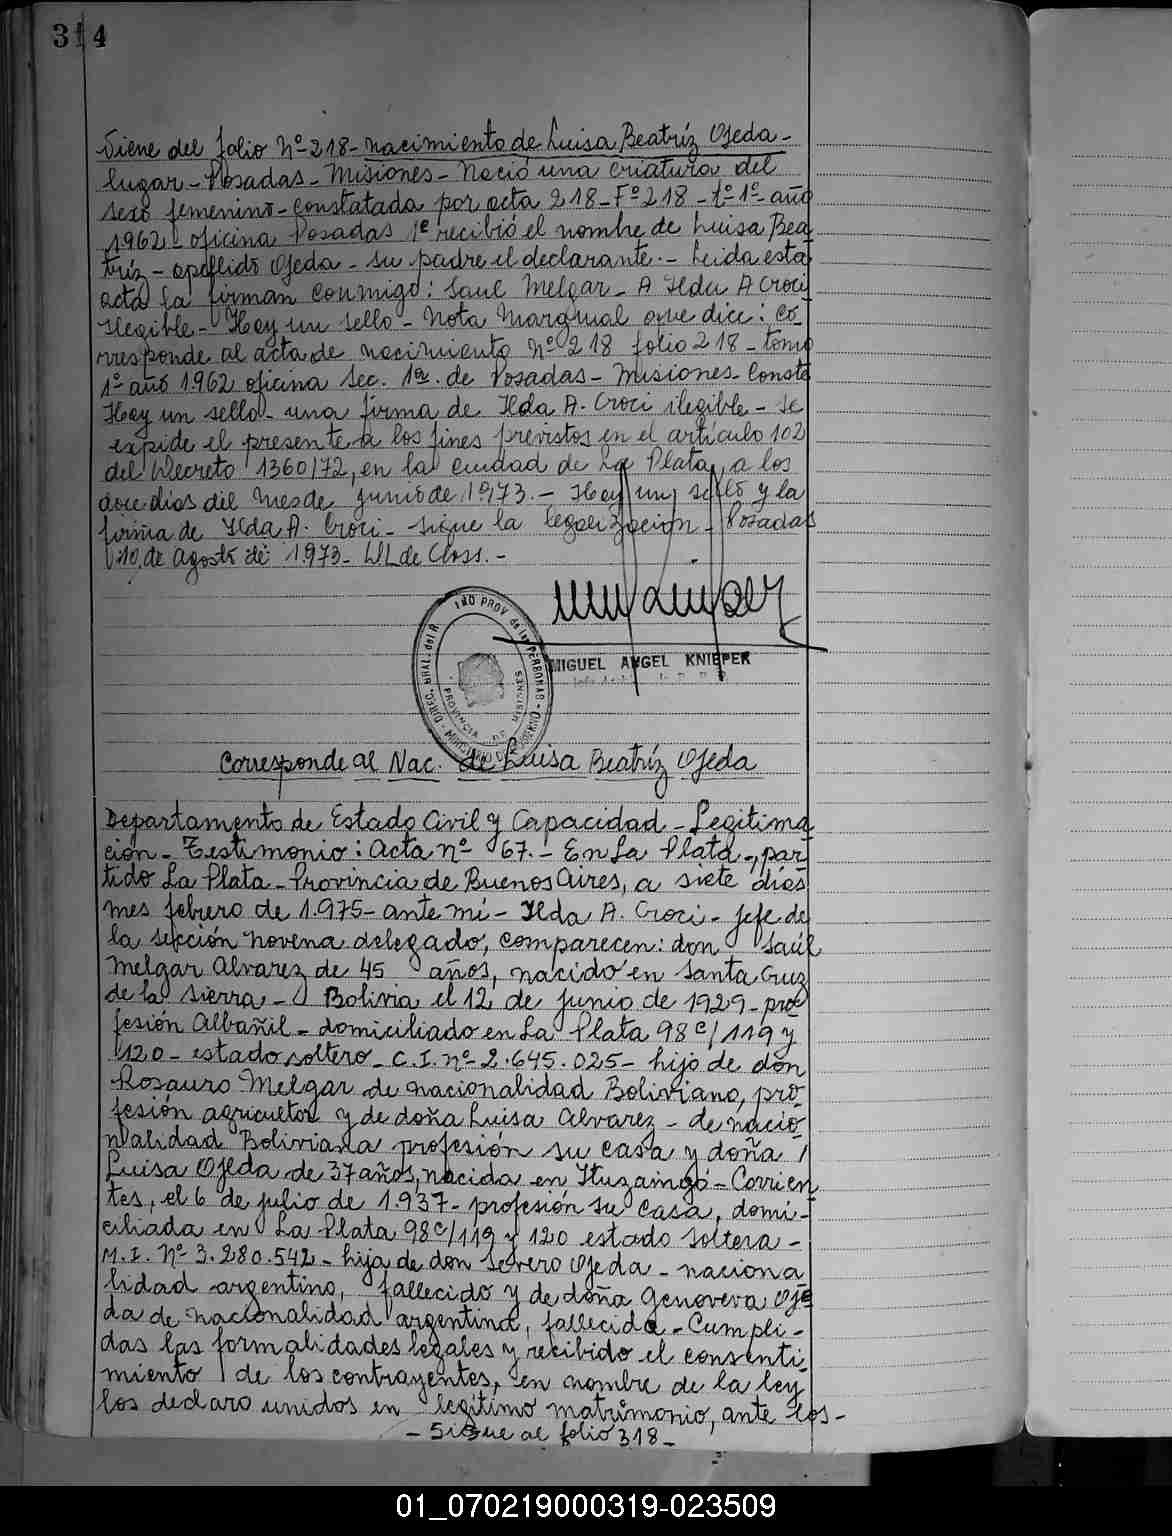 314
Viene del folio Nº 218 - nacimiento de Luisa Beatríz Ojeda -
lugar - Posadas - Misiones - Nació una criatura del
sexo femenino - constatada por acta 218 - Fº 218 - tº 1º - año
1962 - oficina Posadas 1ª recibió el nombre de Luisa Bea
tríz - apellido Ojeda - su padre el declarante. - Leida esta
acta la firman conmigo: Saul Melgar - A Ilda A Croci
Ilegible - Hay un sello - Nota Marginal que dice: Co-
rresponde al acta de nacimiento Nº 218 folio 218 - tomo
1º año 1.962 oficina Sec. 1ª. de Posadas - Misiones - Conste
Hay un sello - una firma de Ilda A. Croci ilegible - Se
expide el presente a los fines previstos en el artículo 102
del Decreto 1360/72, en la ciudad de La Plata, a los
doce días del mes de junio de 1973. - Hay un sello y la
firma de Ilda A. Croci - sigue la legalización - Posadas
10, de Agosto de 1.973 - W.L de Closs. -
MIGUEL ANGEL KNIEPER
DIREC. GRAL. del R. PROV. de las PERSONAS - MINISTERIO DE GOBIERNO -
PROVINCIA DE MISIONES
Corresponde al Nac. de Luisa Beatríz Ojeda
Departamento de Estado Civil y Capacidad - Legitima
ción - Testimonio: Acta nº 67. - En La Plata -, par-
tido La Plata - Provincia de Buenos Aires, a siete días
mes febrero de 1.975 - ante mí - Ilda A. Croci - Jefe de
la sección novena delegado, comparecen: don Saúl
Melgar Alvarez de 45 años, nacido en Santa Cruz
de la Sierra - Bolivia el 12 de junio de 1929 - pro-
fesión Albañil - domiciliado en La Plata 98 c/ 119 y
120 - estado soltero - C.I. nº 2.645.025 - hijo de don
Rosauro Melgar de nacionalidad Boliviano, pro-
fesión agricultor y de doña Luisa Alvarez - de nacio-
nalidad Boliviana profesión su casa y doña /
Luisa Ojeda de 37 años, nacida en Ituzaingó - Corrien
tes, el 6 de julio de 1.937 - profesión su casa, domi-
ciliada en La Plata 98 c/ 119 y 120 estado soltera -
M.I. Nº 3.280.542 - hija de don Severo Ojeda - naciona
lidad argentino, fallecido y de doña Genoveva Oje
da de nacionalidad argentina, fallecida - Cumpli-
das las formalidades legales y recibido el consenti-
miento de los contrayentes, en nombre de la ley
los declaro unidos en legítimo matrimonio, ante los -
- Sigue al folio 318 -
01_070219000319-023509